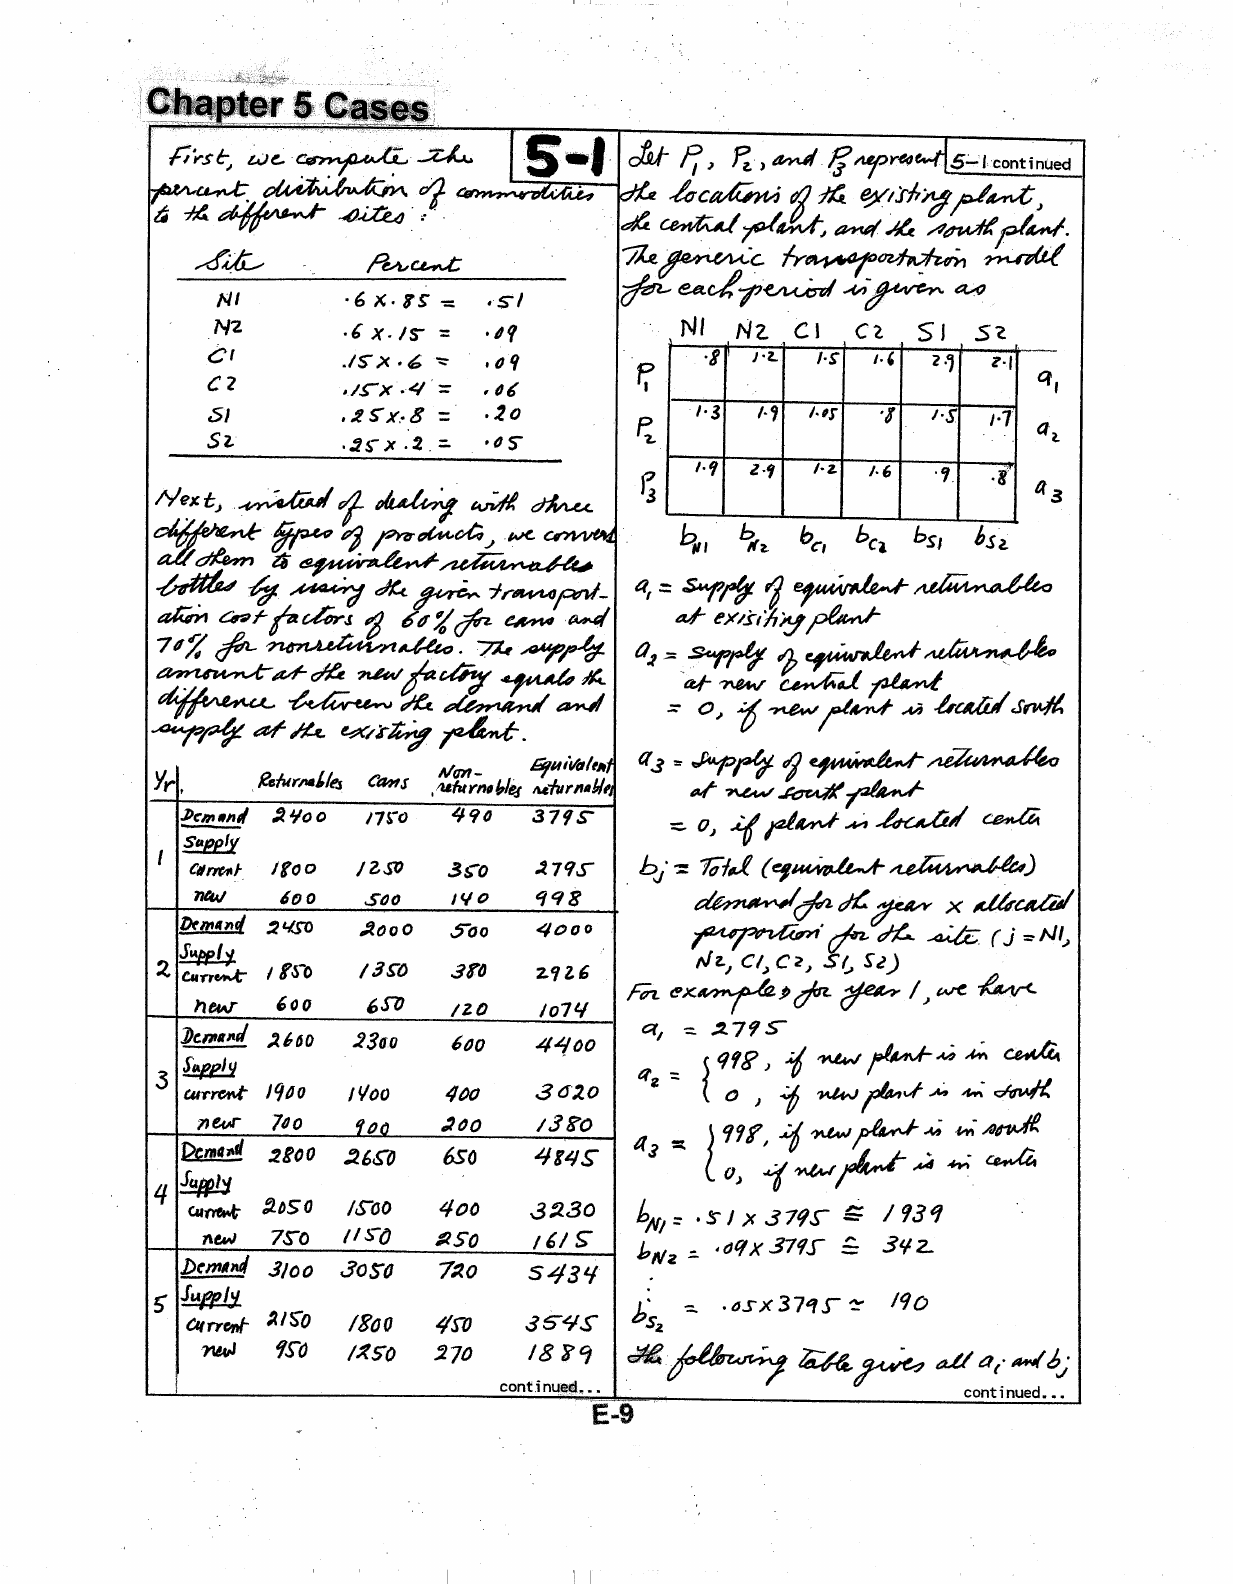 Chapter 5 Cases
5-1
First, we compute the
percent distribution of commodities
to the different sites :
Site Percent
N1 .6 X .85 = .51
N2 .6 X .15 = .09
C1 .15 X .6 = .09
C2 .15 X .4 = .06
S1 .25 X .8 = .20
S2 .25 X .2 = .05
Next, instead of dealing with three
different types of products, we convert
all them to equivalent returnables
bottles by using the given transport-
ation cost factors of 60% for cans and
70% for nonreturnables. The supply
amount at the new factory equals the
difference between the demand and
supply at the existing plant.
Yr. Returnables Cans Non-returnables Equivalent returnables
1
Demand 2400 1750 490 3795
Supply
Current 1800 1250 350 2795
new 600 500 140 998
2
Demand 2450 2000 500 4000
Supply
Current 1850 1350 380 2926
new 600 650 120 1074
3
Demand 2600 2300 600 4400
Supply
current 1900 1400 400 3020
new 700 900 200 1380
4
Demand 2800 2650 650 4845
Supply
Current 2050 1500 400 3230
new 750 1150 250 1615
5
Demand 3100 3050 720 5434
Supply
Current 2150 1800 450 3545
new 950 1250 270 1889
continued...
5-1 continued
Let P1, P2, and P3 represent
the locations of the existing plant,
the central plant, and the south plant.
The generic transportation model
for each period is given as
N1 N2 C1 C2 S1 S2
P1 .8 1.2 1.5 1.6 2.9 2.1 a1
P2 1.3 1.9 1.05 .8 1.5 1.7 a2
P3 1.9 2.9 1.2 1.6 .9 .8 a3
bN1 bN2 bC1 bC2 bS1 bS2
a1 = Supply of equivalent returnables
at exisiting plant
a2 = Supply of equivalent returnables
at new central plant
= 0, if new plant is located south
a3 = Supply of equivalent returnables
at new south plant
= 0, if plant is located center
bj = Total (equivalent returnables)
demand for the year x allocated
proportion for the site. (j = N1,
N2, C1, C2, S1, S2)
For example, for year 1, we have
a1 = 2795
a2 = { 998, if new plant is in center
0, if new plant is in south
a3 = { 998, if new plant is in south
0, if new plant is in center
bN1 = .51 x 3795 ≅ 1939
bN2 = .09 x 3795 ≅ 342
⋮
bS2 = .05 x 3795 ≃ 190
The following table gives all ai and bj
continued...
E-9